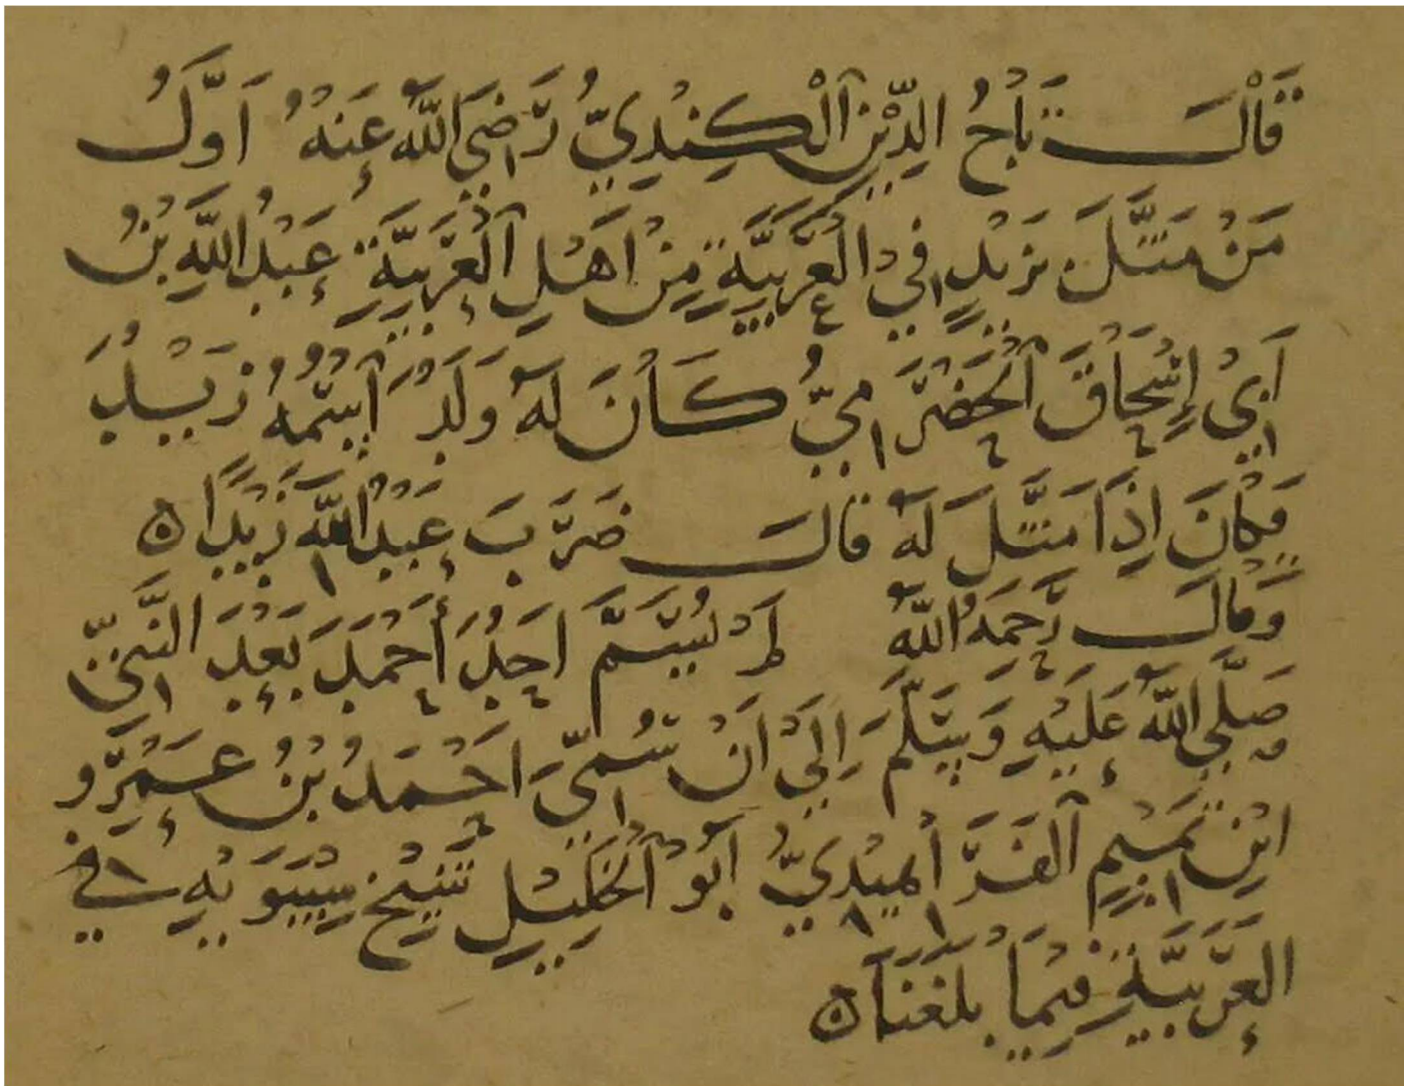 قَالَ تَاجُ الدِّيْنِ الْكِنْدِيُّ رَضِيَ اللّٰهُ عَنْهُ اَوَّلُ
مَنْ مَثَّلَ بِزَيْدٍ فِي الْعَرَبِيَّةِ مِنْ اَهْلِ الْعَرَبِيَّةِ عَبْدُ اللّٰهِ بْنُ
اَبِيْ اِسْحَاقَ الْحَضْرَمِيُّ كَانَ لَهُ وَلَدٌ اسْمُهُ زَيْدٌ
فَكَانَ اِذَا مَثَّلَ لَهُ قَالَ ضَرَبَ عَبْدُ اللّٰهِ زَيْدًا ٥
وَقَالَ رَحِمَهُ اللّٰهُ لَمْ يُسَمَّ اَحَدٌ أَحْمَدَ بَعْدَ النَّبِيِّ
صَلَّى اللّٰهُ عَلَيْهِ وَسَلَّمَ اِلَى اَنْ سُمِّيَ اَحْمَدُ بْنُ عَمْرِو
ابْنِ تَمِيْمٍ الْفَرَاهِيْدِيُّ اَبُو الْخَلِيْلِ شَيْخِ سِيْبَوَيْهِ فِي
الْعَرَبِيَّةِ فِيْمَا بَلَغَنَا ٥